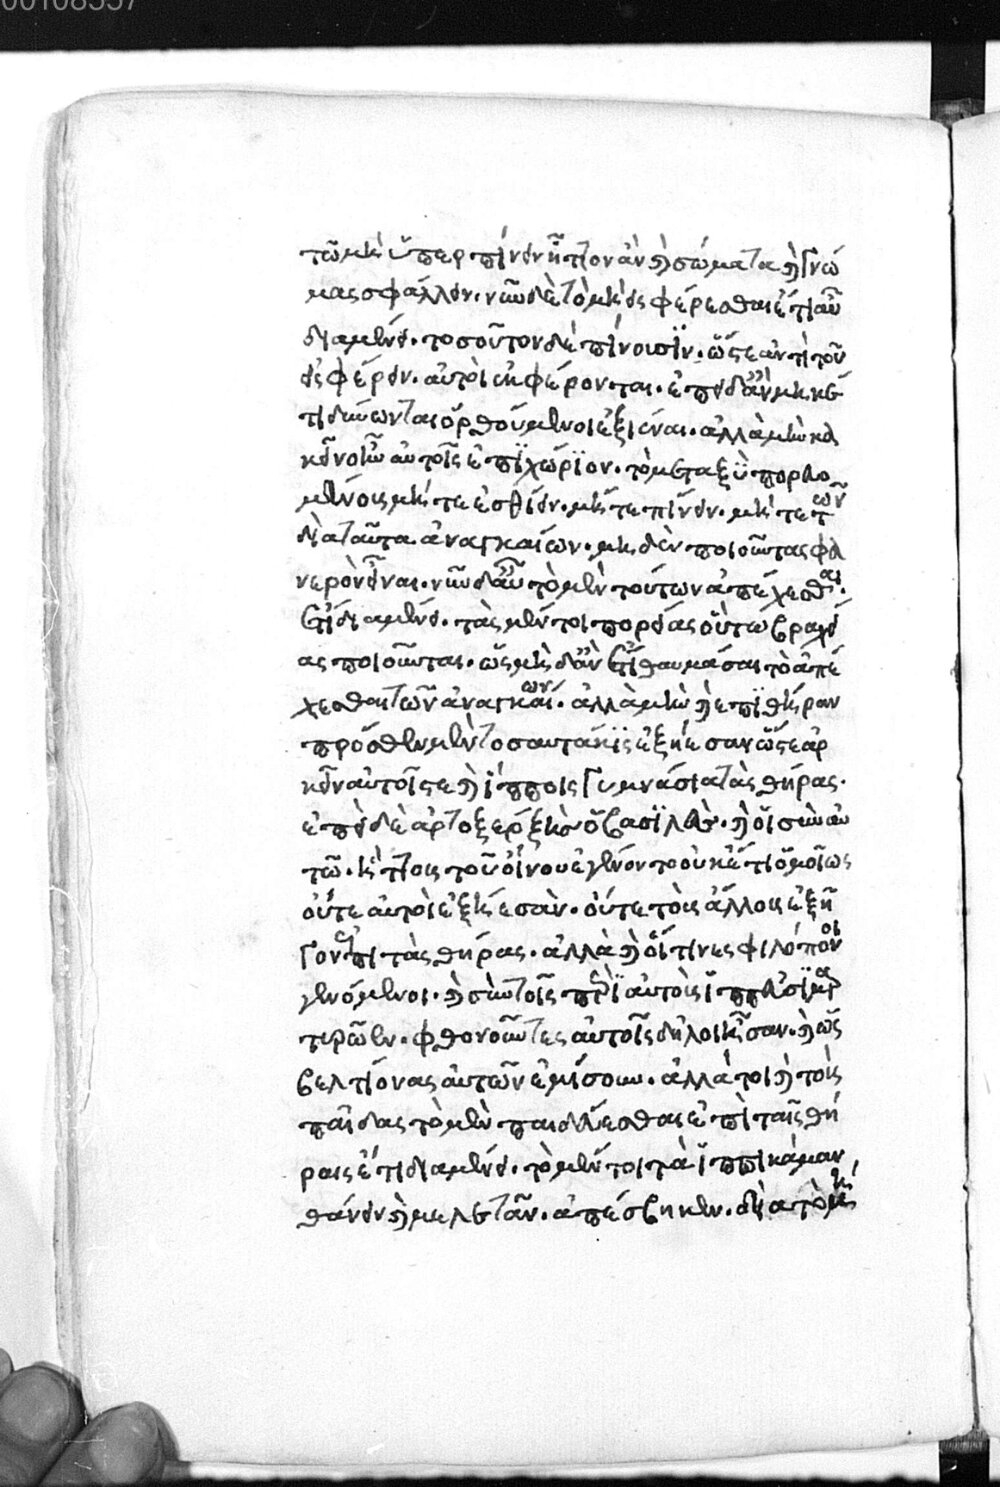 00108557
τῶ μὴ ὑπερπίνειν ἧττον ἂν καὶ σώματα καὶ γνώ
μας σφάλλειν. νῦν δὲ τὸ μὴ εἰσφέρεσθαι ἔτι αὖ
διαμένει. τοσοῦτον δὲ πίνουσιν. ὥστε ἀντὶ τοῦ
εἰσφέρειν. αὐτοὶ ἐκφέρονται. ἐπειδὰν μηκέ
τι δύνωνται ὀρθούμενοι ἐξιέναι. ἀλλὰ μὴν κἀ
κεῖνο ἦν αὐτοῖς ἐπιχώριον. τὸ μεταξὺ πορευο
μένοις μήτε ἐσθίειν. μήτε πίνειν. μήτε τῶν
διὰ ταῦτα ἀναγκαίων. μηδὲν ποιοῦντας φα
νεροὺς εἶναι. νῦν δ' αὖ τὸ μὲν τούτων ἀπέχεσθαι.
ἔτι διαμένει. τὰς μέντοι πορείας οὕτω βραχεί
ας ποιοῦνται. ὡς μηδὲν ἂν ἔτι θαυμάσαι τὸ ἀπέ
χεσθαι τῶν ἀναγκαίων. ἀλλὰ μὴν καὶ ἐπὶ θήραν
πρόσθεν μὲν τοσαυτάκις ἐξῄεσαν ὥστε ἀρ
κεῖν αὐτοῖς τε καὶ ἵπποις γυμνάσια τὰς θήρας.
ἐπεὶ δὲ ἀρτοξέρξης ὁ βασιλεὺς. καὶ οἱ σὺν αὐ
τῶ. ἥττους τοῦ οἴνου ἐγένοντο οὐκέτι ὁμοίως
οὔτε αὐτοὶ ἐξῄεσαν. οὔτε τοὺς ἄλλους ἐξῆ
γον ἐπὶ τὰς θήρας. ἀλλὰ καὶ οἵτινες φιλόπονοι
γενόμενοι. καὶ σὺν τοῖς περὶ αὐτοὺς ἱππεῦσιν ἅμα
θηρῶεν. φθονοῦντες αὐτοῖς δῆλοι ἦσαν. καὶ ὡς
βελτίονας αὐτῶν ἐμίσουν. ἀλλά τοι καὶ τοὺς
παῖδας τὸ μὲν παιδεύεσθαι ἐπὶ ταῖς θύ
ραις ἔτι διαμένει. τὸ μέντοι τὰ ἱππικὰ μαν
θάνειν καὶ μελετᾶν. ἀπέσβηκεν. διὰ τὸ μὴ